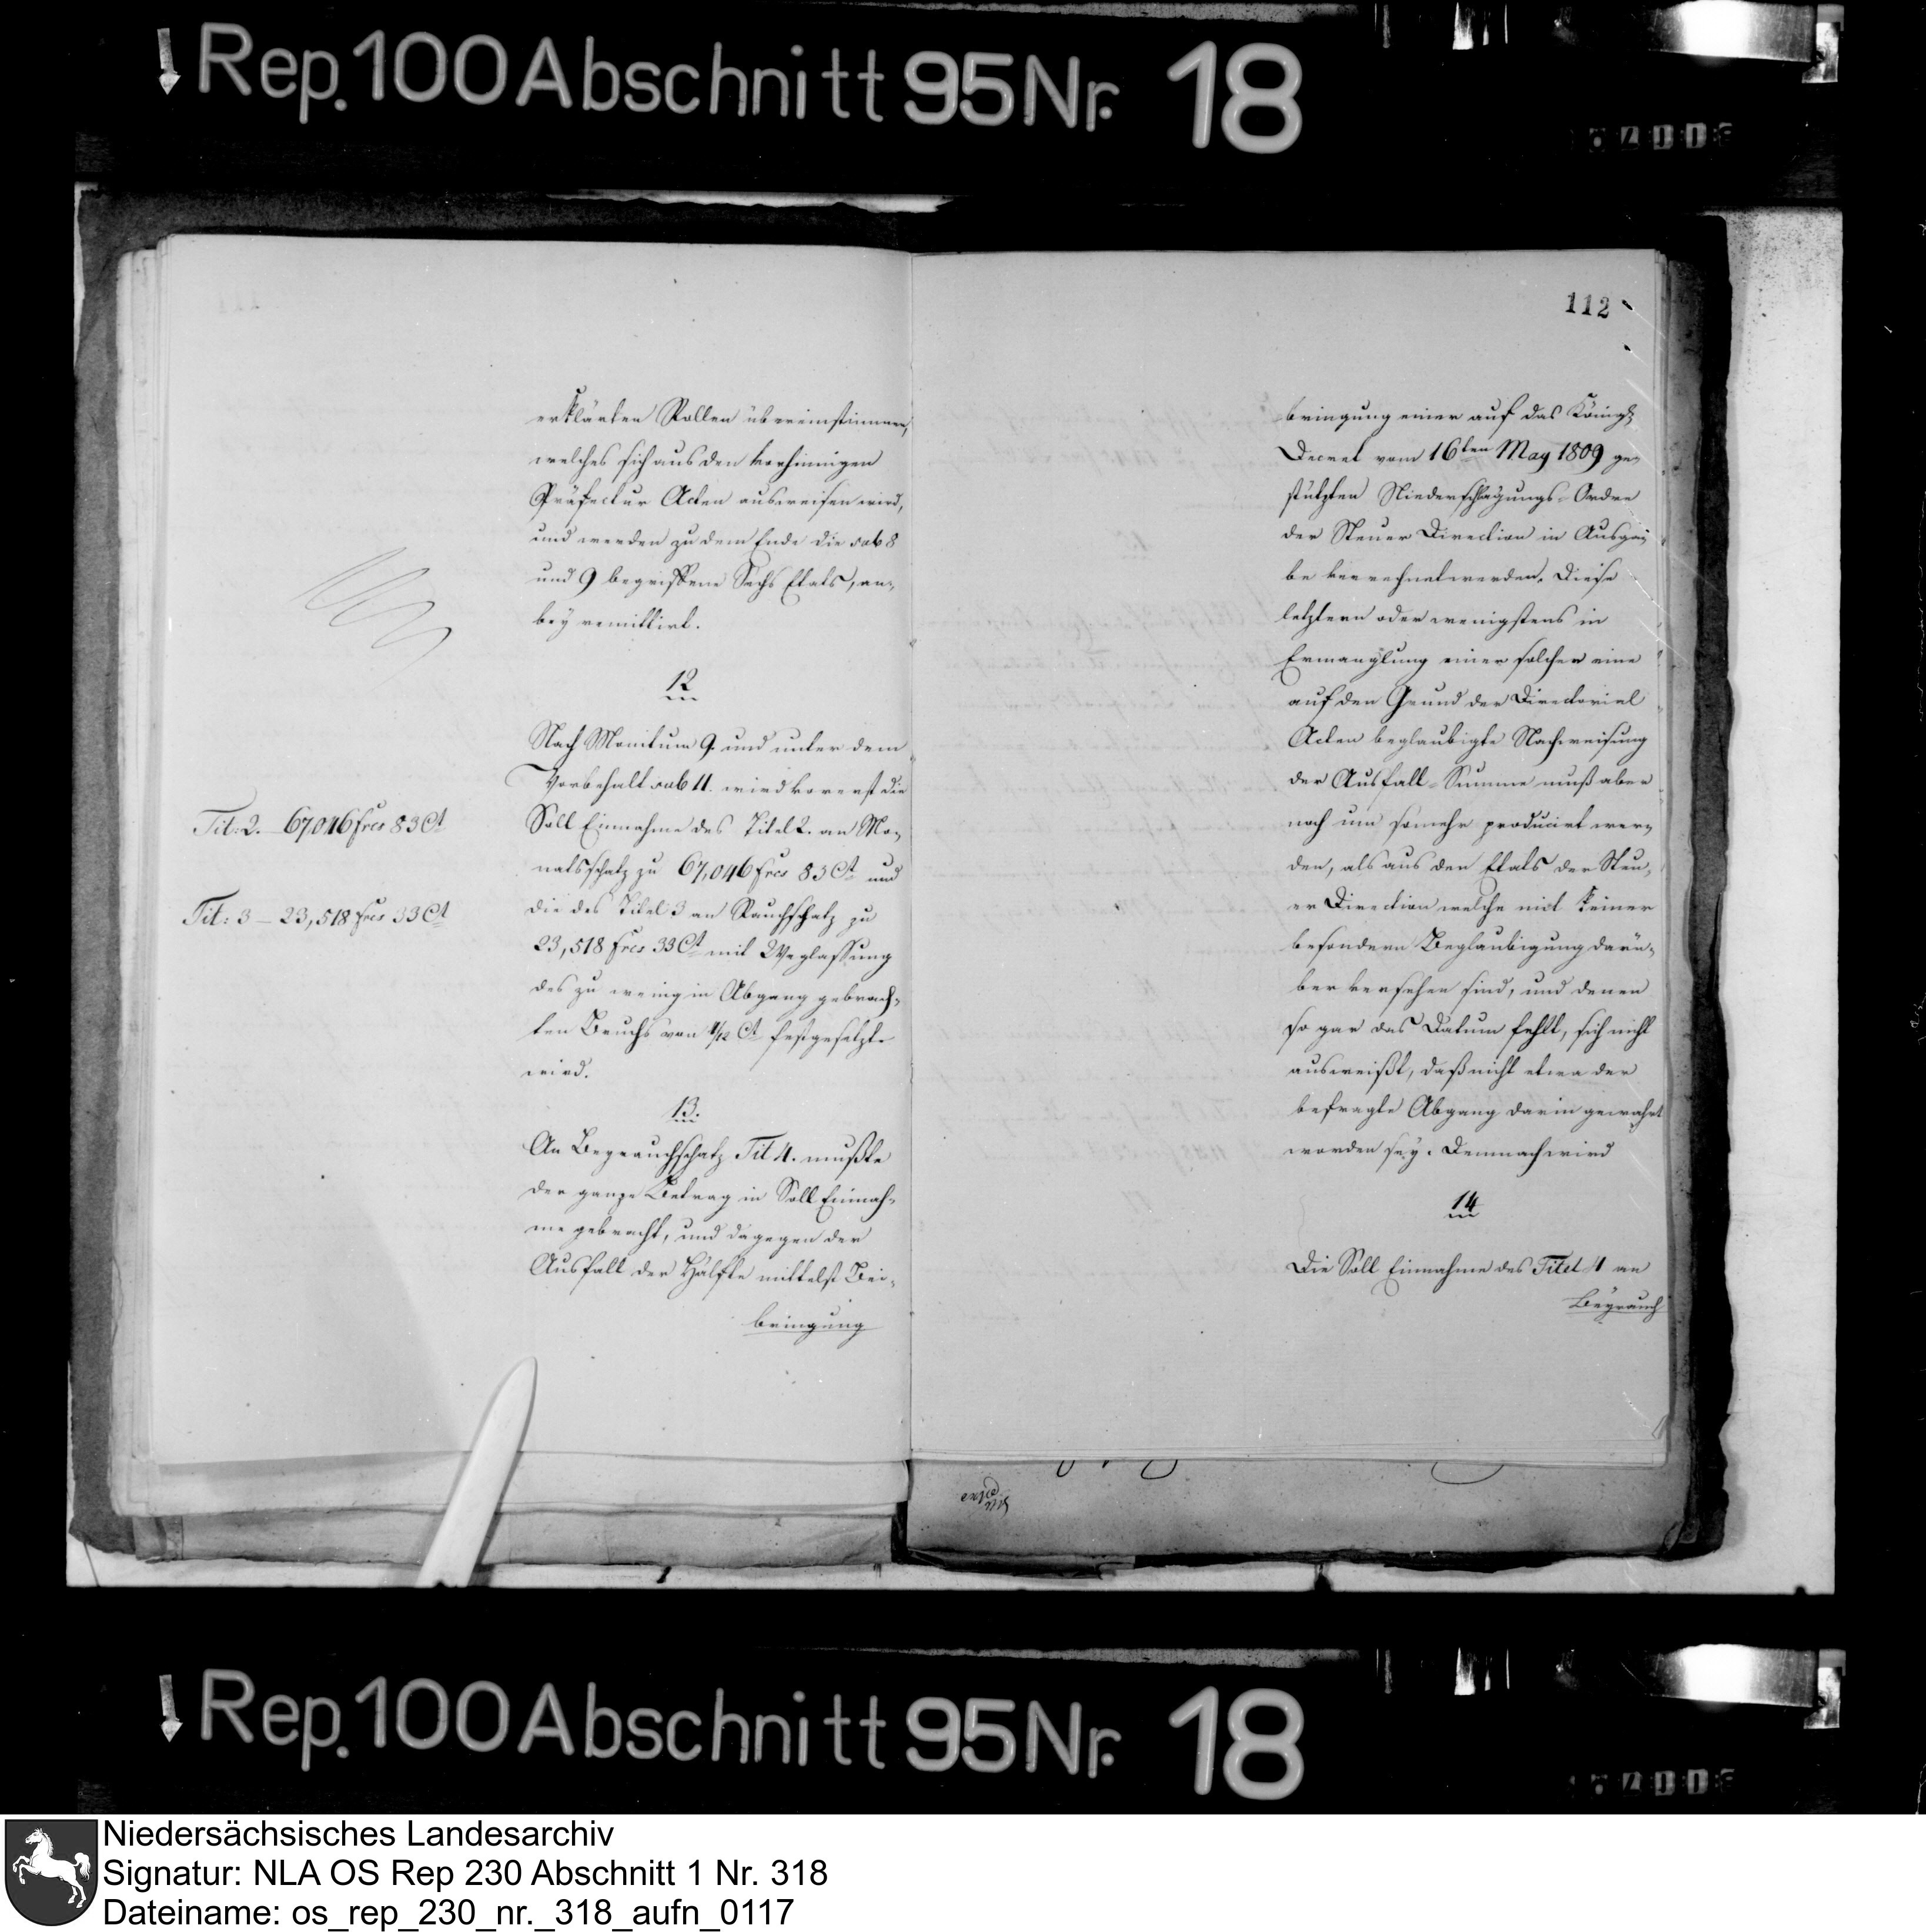 Rep. 100 Abschnitt 95 Nr. 18
112
erklärten Rollen übereinstimmen,
welches sich aus den vorhinnigen
Präfectur Acten ausweisen wird,
und werden zu dem Ende die sub 8
und 9 begriffene Sechs Etats, an-
bey remittirt.
12
Nach Monitum 9. und unter dem
Vorbehalt sub 11. wird vorerst die
Soll Einnahme des Titel 2. an Mo-
Tit: 2. 67,046 frcs 83 Ct
natsschatz zu 67,046 frcs 83 Ct und
die des Titel 3 an Rauchschatz zu
Tit: 3 – 23,518 frcs 33 Ct
23,518 frcs 33 Ct mit Weglassung
des zu wenig in Abgang gebrach-
ten Bruchs von 1/12 Ct festgesetzt
wird.
13.
An Beyrauchschatz Tit 4. mußte
der ganze Betrag in Soll Einnah-
me gebracht, und dagegen der
Ausfall der Hälfte mittelst Bei-
bringung
bringung einer auf das Königl.
Decret vom 16ten May 1809 ge-
stützten Niederschlagungs-Ordre
der Steuer Direction in Ausga-
be verrechnet werden. Diese
letztern oder wenigstens in
Ermanglung einer solchen eine
auf den Grund der Directorial
Acten beglaubigte Nachweisung
der Ausfall-Summe muß aber
noch um somehr producirt wer-
den, als aus den Etats der Steu-
er Direction welche mit keiner
besondern Beglaubigung darü-
ber versehen sind, und denen
so gar das Datum fehlt, sich nicht
ausweißt, daß nicht etwa der
befragte Abgang darin gewahrt
worden sey. Demnach wird
14
Die Soll Einnahme des Titel 4 an
Beyrauch
Rep. 100 Abschnitt 95 Nr. 18
Niedersächsisches Landesarchiv
Signatur: NLA OS Rep 230 Abschnitt 1 Nr. 318
Dateiname: os_rep_230_nr._318_aufn_0117